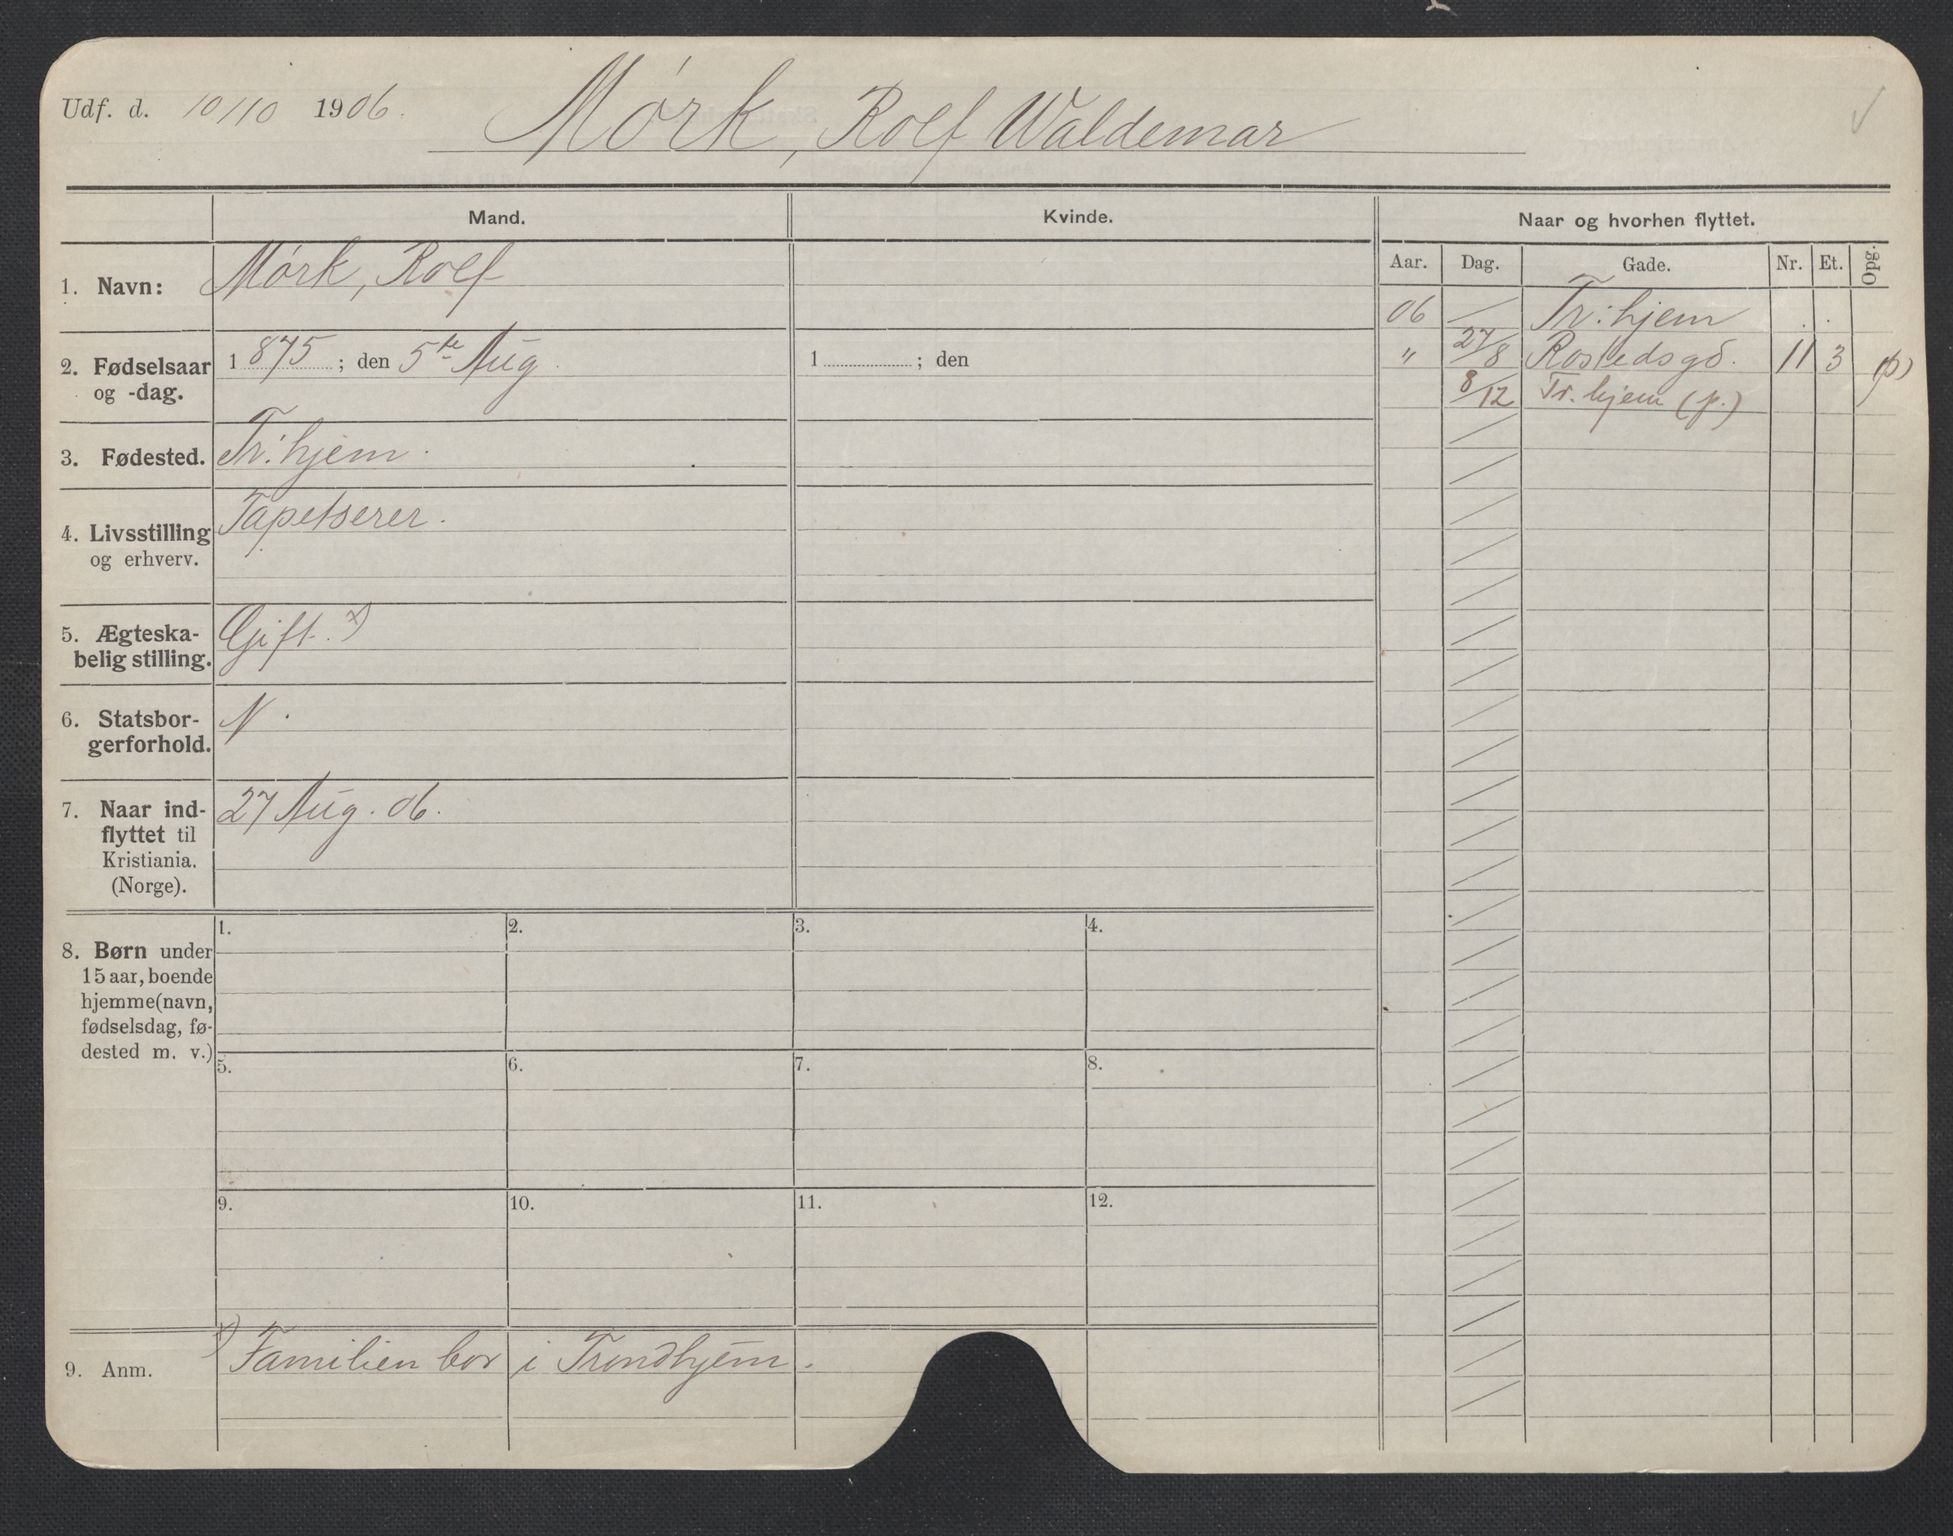 Udf. d. 10/10 1906.
Mørk, Rolf Waldemar
Mand.
Kvinde.
Naar og hvorhen flyttet.
Aar. Dag. Gade. Nr. Et. Opg.
1. Navn: Mørk, Rolf
06 Tr:hjem . .
2. Fødselsaar og -dag. 1 875 ; den 5te Aug.
1 ; den
" 27/8 Rostedsgd. 11 3 (p)
8/12 Tr.hjem (p.)
3. Fødested. Tr:hjem.
4. Livsstilling og erhverv. Tapetserer.
5. Ægteska-
belig stilling. Gift. x)
6. Statsbor-
gerforhold. N.
7. Naar ind-
flyttet til
Kristiania.
(Norge).
27 Aug. 06.
8. Børn under
15 aar, boende
hjemme (navn,
fødselsdag, fø-
dested m. v.)
1. 2. 3. 4.
5. 6. 7. 8.
9. 10. 11. 12.
9. Anm. x) Familien bor i Trondhjem.